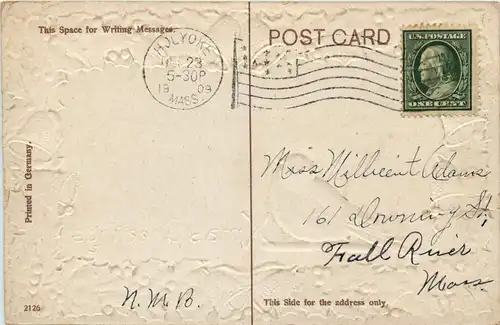 This Space for Writing Messages.
POST CARD
HOLYOKE
23
5-30P
19 09
MASS.
U.S. POSTAGE
ONE CENT
Printed in Germany.
Miss Millicent Adams
161 Downing St,
Fall River
Mass.
N.M.B.
2126
This Side for the address only.